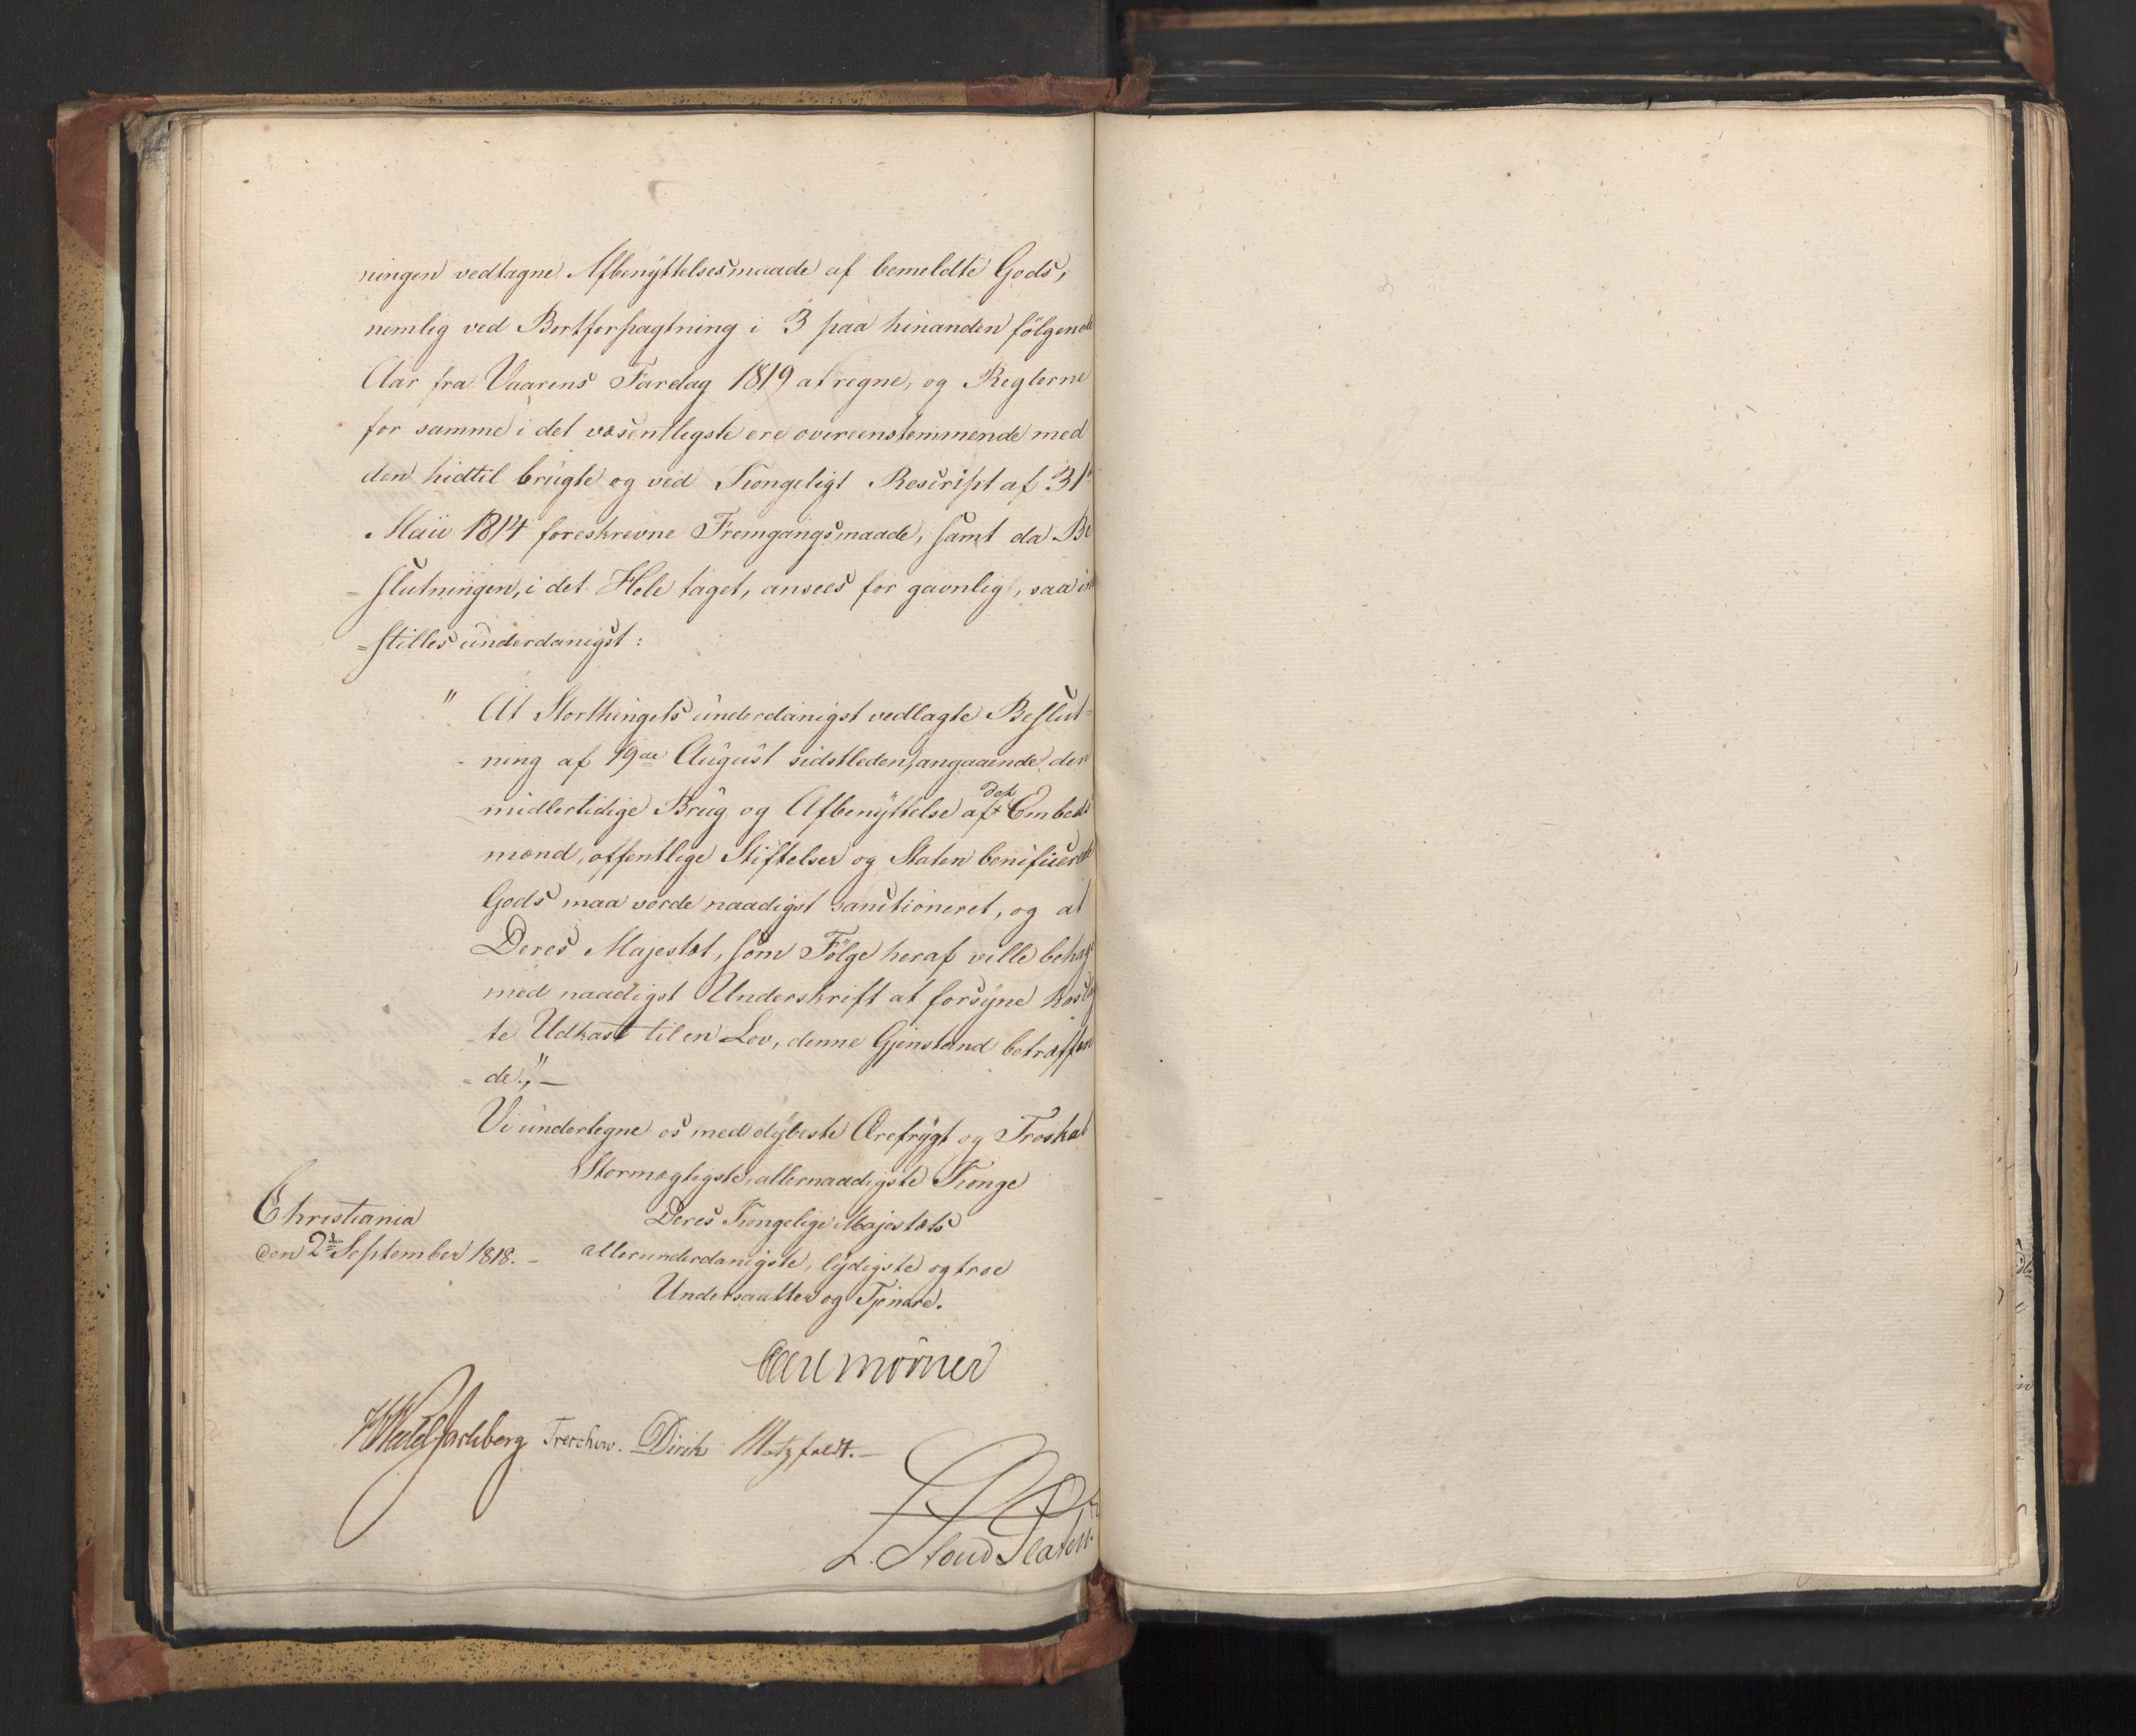 ningen vedtagne Afbenÿttelsesmaade af bemeldte Gods,
nemlig ved Bortforpagtning i 3 paa hinanden fölgende
Aar fra Vaarens Faredag 1819 at regne, og Reglerne
for samme i det væsentligste ere overeensstemmende med
den hidtil brugte og ved Kongeligt Rescript af 31te
Maii 1814 foreskrevne Fremgangsmaade, samt da Be
=slutningen, i det Hele taget, ansees for gavnlig, saa ind
=stilles underdanigst:
" At Storthingets underdanigst vedlagte Beslut=
ning af 19de August sidstleden, angaaende den
midlertidige Brug og Afbenÿttelse af det Embeds
mænd, offentlige Stiftelser og Staten benificerede
Gods maa vorde naadigst sanctioneret, og at
Deres Majestæt, som Fölge heraf ville behage
med naadigst Underskrift at forsÿne hoslag
te Udkast til en Lov, denne Gjenstand betræffen
=de.„" —
Vi undertegne os med dÿbeste Ærefrÿgt og Troskab
Stormægtigste, allernaadigste Konge
Deres Kongelige Majestæts
allerunderdanigste, lÿdigste og troe
Undersaatter og Tjenere.
Christiania
den 2den September 1818. –
Carl Mörner
HWedel Jarlsberg Treschow. Diriks Motzfeldt. —
L. Stoud Platou